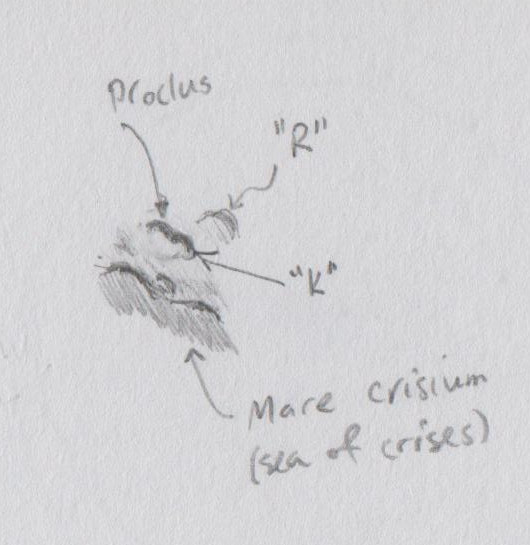 Proclus
"R"
"K"
Mare crisium
(sea of crises)